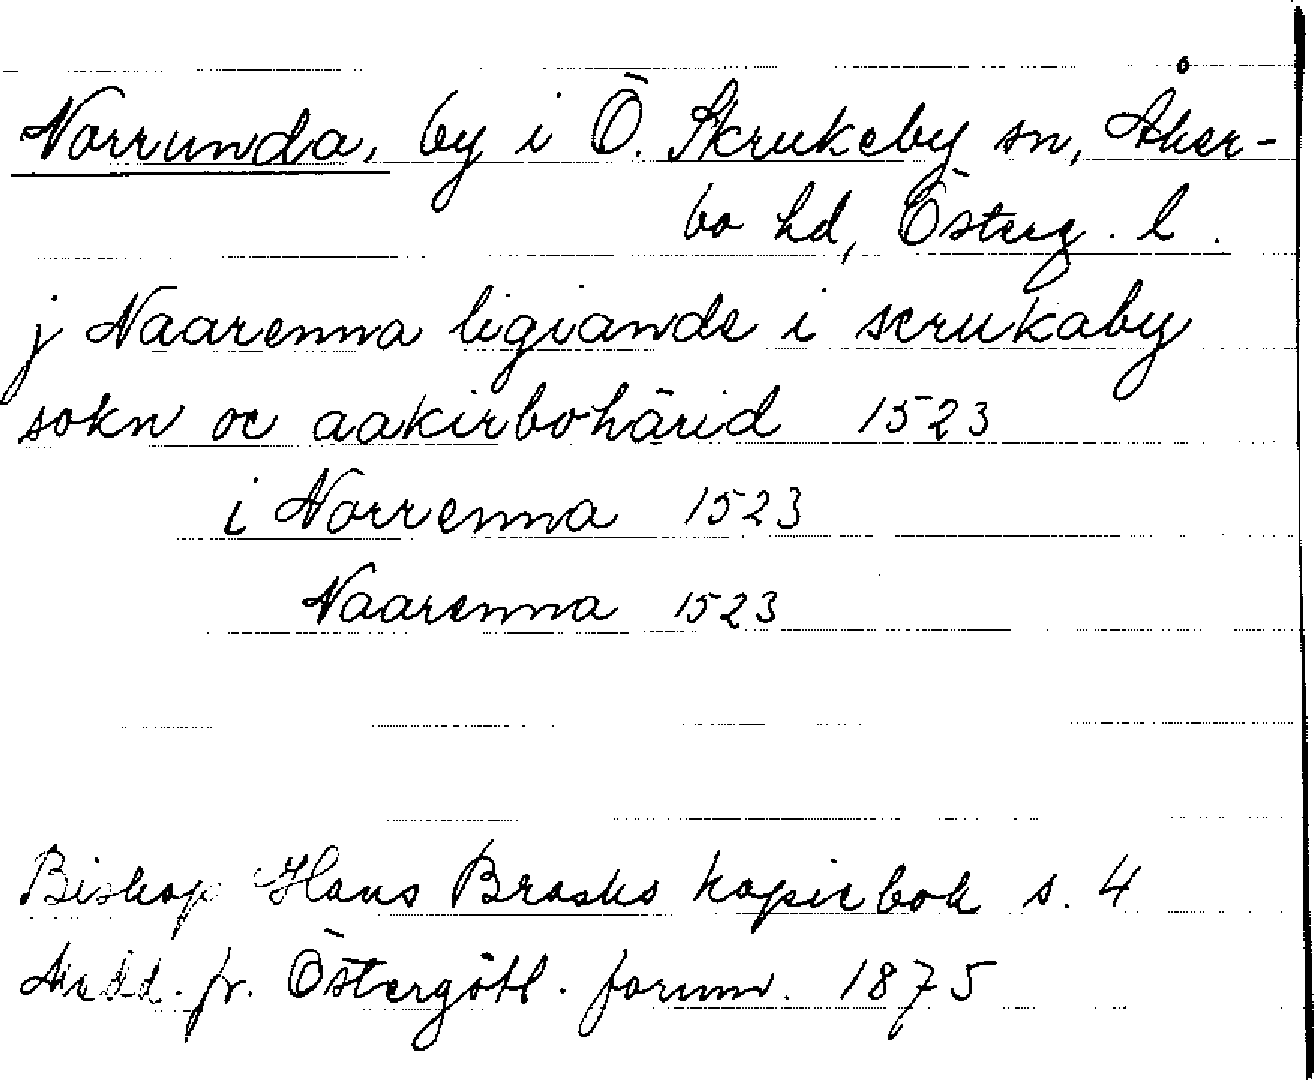 Norrunda, by i Ö. Skrukeby sn, Åker-
bo hd, Österg. l.
j Naarenna ligiande i scrukaby
sokn oc aakirbohärid 1523
i Norrenna 1523
Naarenna 1523
Biskop Hans Brasks kopiebok s. 4
Medd. fr. Östergötl. fornm. 1875